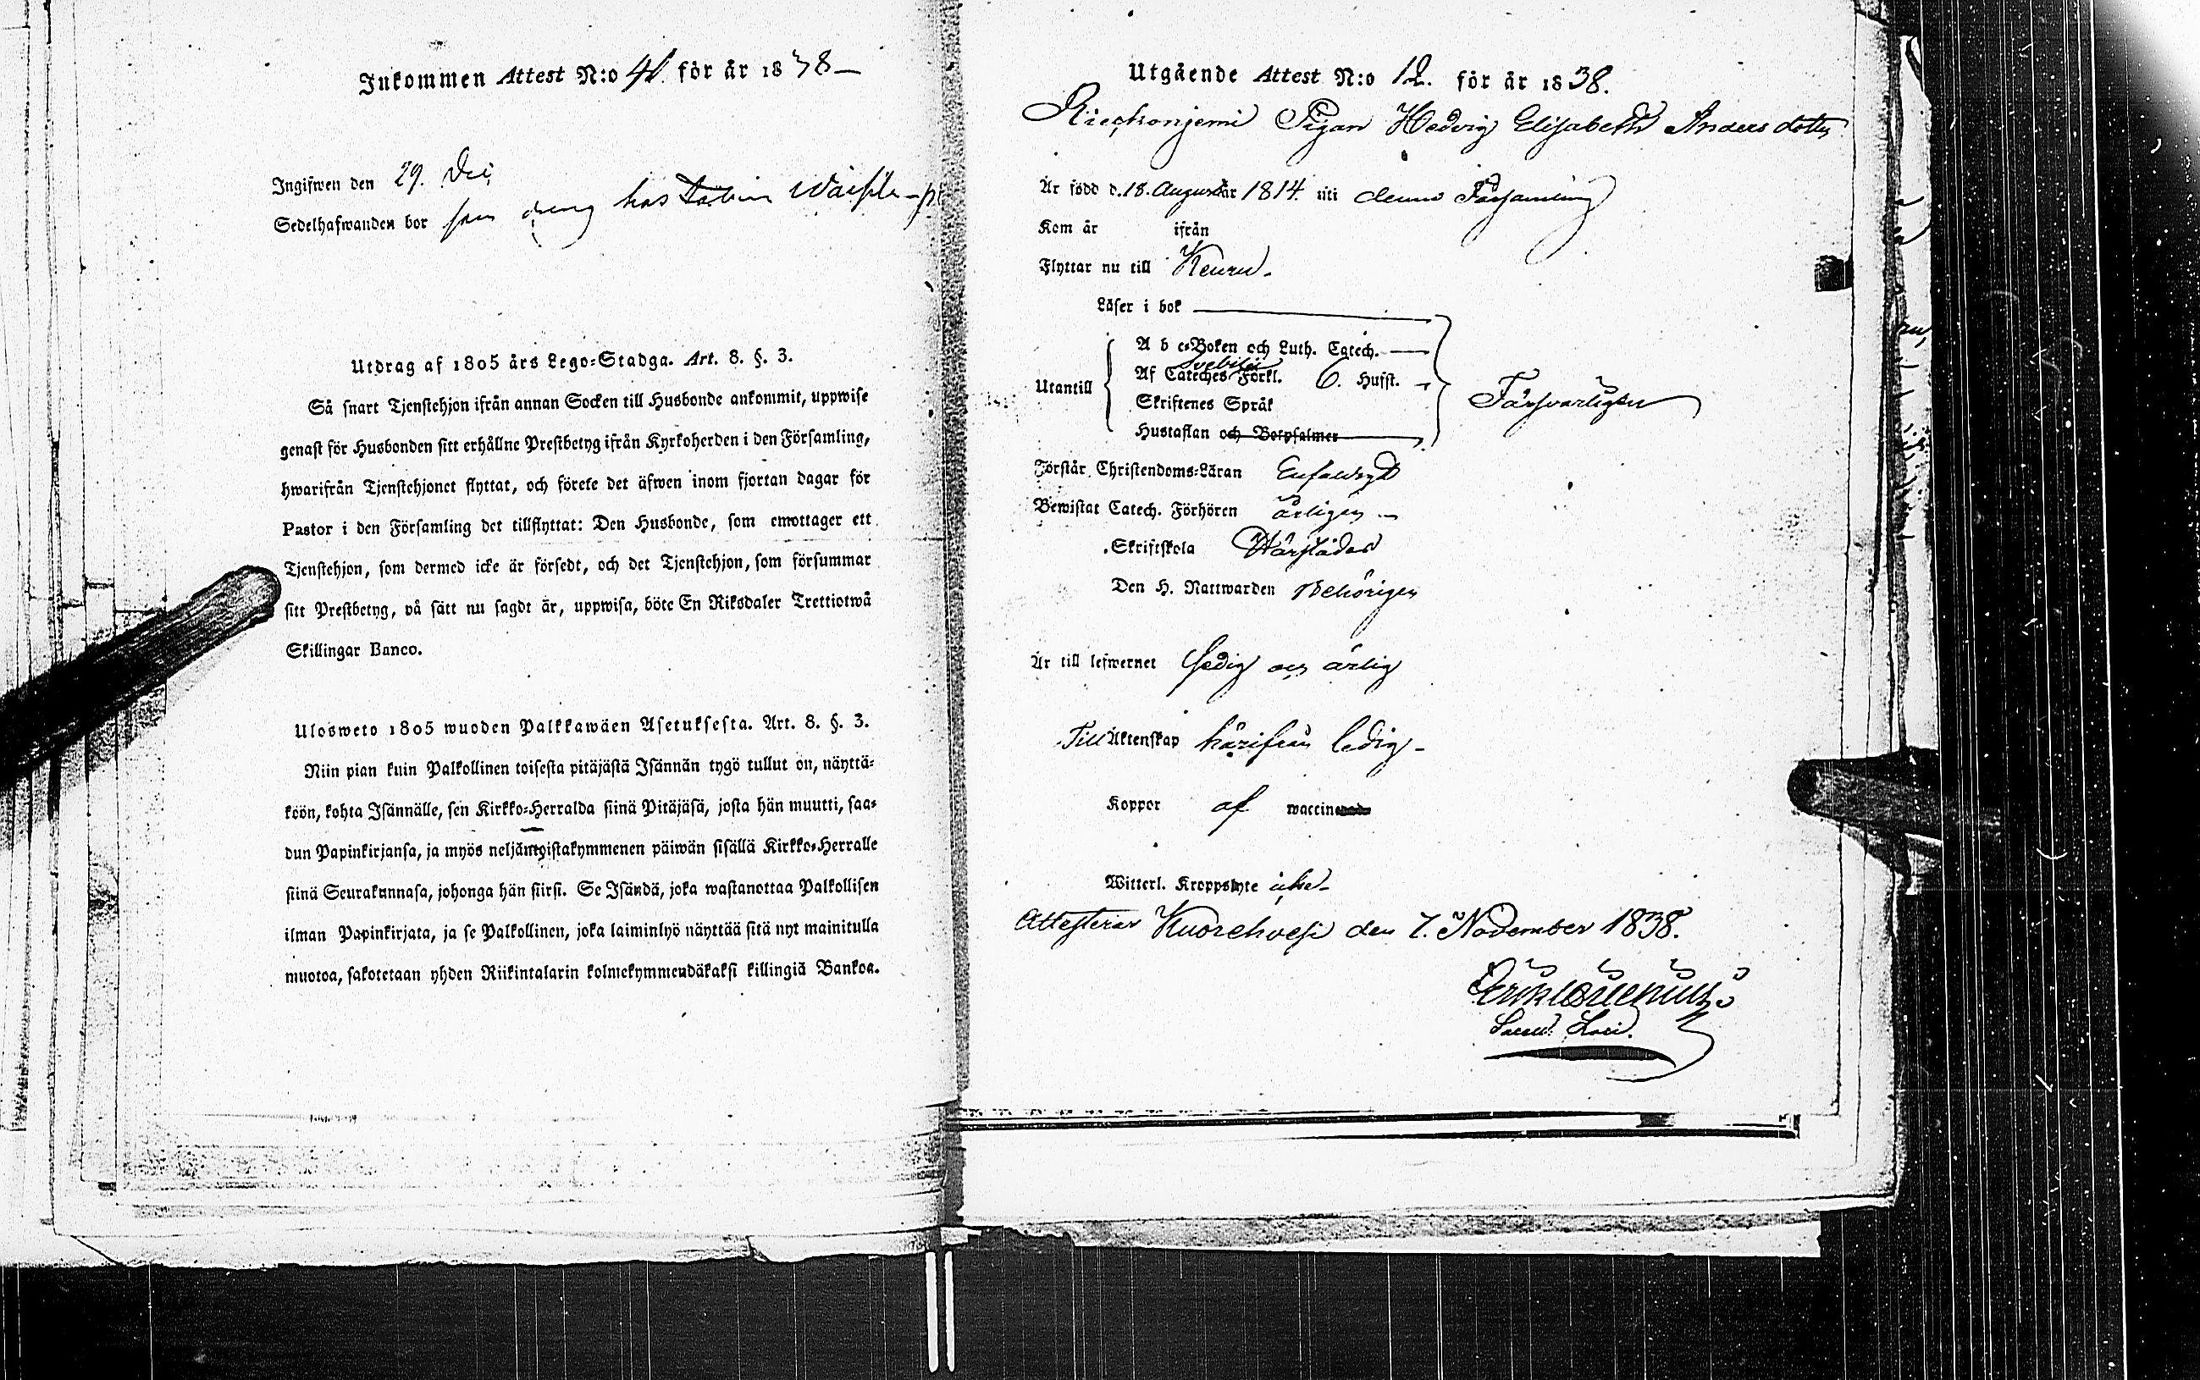 Inkommen Attest N:o 41. för år 1838 —
Ingifwen den 29. Dec.
Sedelhafwanden bor som dräng hos
Utdrag af 1805 års Lego=Stadga. Art. 8. §. 3.
Så snart Tjenstehjon ifrån annan Socken till Husbonde ankommit, uppwise
genast för Husbonden sitt erhållne Prestbetyg ifrån Kyrkoherden i den Församling,
hwarifrån Tjenstehjonet flyttat, och förete det äfwen inom fjortan dagar för
Pastor i den Församling det tillflyttat: Den Husbonde, som emottager ett
Tjenstehjon, som dermed icke är försedt, och det Tjenstehjon, som försummar
sitt Prestbetyg, på sätt nu sagdt är, uppwisa, böte En Riksdaler Trettiotwå
Skillingar Banco.
Ulosweto 1805 wuoden Palkkawäen Asetuksesta. Art. 8. §. 3.
Niin pian kuin Palkollinen toisesta pitäjästä Isännän tygö tullut on, näyttä=
köön, kohta Isännälle, sen Kirkko=Herralda siinä Pitäjäsä, josta hän muutti, saa=
dun Papinkirjansa, ja myös neljäntoistakymmenen päiwän sisällä Kirkko=Herralle
siinä Seurakunnasa, johonga hän siirsi. Se Isändä, joka wastanottaa Palkollisen
ilman Papinkirjata, ja se Palkollinen, joka laiminlyö näyttää sitä nyt mainitulla
muotoa, sakotetaan yhden Riikintalarin kolmekymmendäkaksi killingiä Bankoa.
Utgående Attest N:o 12. för år 1838.
Pigan Hedvig Elisabeth Andersdotter
Är född d. 18. Augusti år 1814. uti denna Församling
Kom år ifrån
Flyttar nu till Keuru.
Läser i bok
A b c=Boken och Luth. Catech.
Svebilii
Utantill Af Cateches Förkl. 6. Hufst.
Försvarligen
Skriftenes Språk
Hustaflan och Botpsalmer
Förstår Christendoms=Läran Enfaldigt
Bewistat Catech. Förhören årligen —
Skriftskola
Den H. Nattwarden Behörigen
Är till lefwernet sedig och ärlig
Till Äktenskap härifrån ledig —
Koppor af waccinerade
Witterl. Kroppslyte icke —
Attesterar Kuorehvesi den 7. November 1838.
Sacell. Loci.